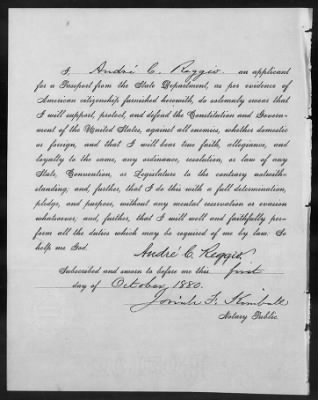 I, André C. Reggio an applicant
for a Passport from the State Department, as per evidence of
American citizenship furnished herewith, do solemnly swear that
I will support, protect, and defend the Constitution and Govern-
ment of the United States, against all enemies, whether domestic
or foreign, and that I will bear true faith, allegiance, and
loyalty to the same, any ordinance, resolution, or law of any
State, Convention, or Legislature to the contrary notwith-
standing; and, further, that I do this with a full determination,
pledge, and purpose, without any mental reservation or evasion
whatsoever; and, further, that I will well and faithfully per-
form all the duties which may be required of me by law: So
help me God.
André C. Reggio
Subscribed and sworn to before me this first
day of October, 1880.
Josiah F. Kimball
Notary Public